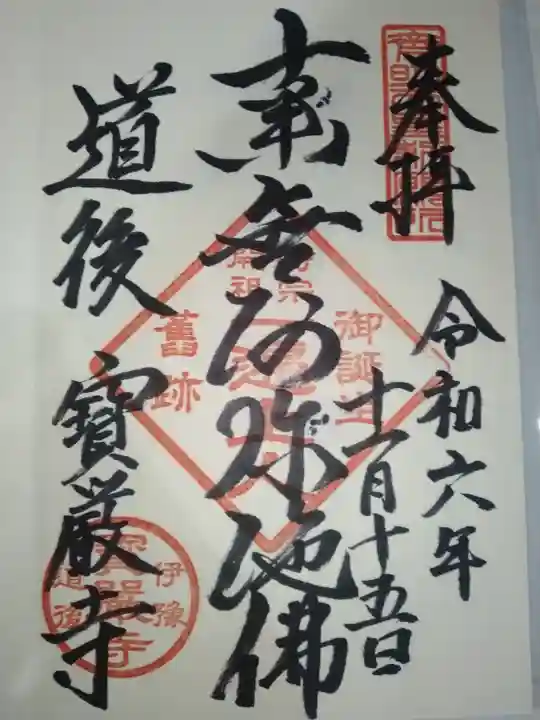 奉拝
令和六年
十一月十五日
南無阿弥陀佛
御誕生
舊跡
時宗
開祖
一遍上人
道後 寳厳寺
伊豫
道後
寳嚴寺